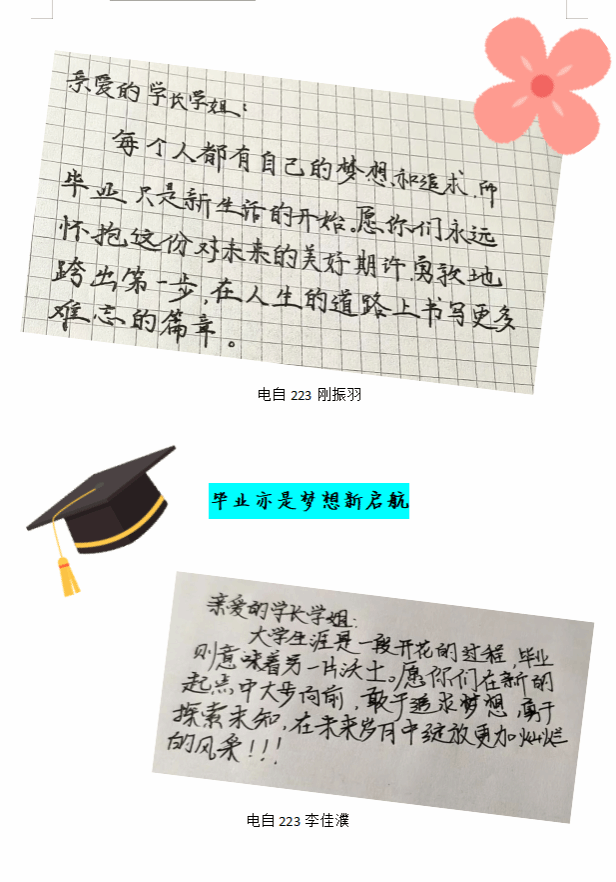 亲爱的学长学姐：
每个人都有自己的梦想和追求,而
毕业只是新生活的开始。愿你们永远
怀抱这份对未来的美好期许,勇敢地
跨出第一步,在人生的道路上书写更多
难忘的篇章。
电自 223 刚振羽
毕业亦是梦想新启航
亲爱的学长学姐:
大学生涯是一段开花的过程,毕业
则意味着另一片沃土。愿你们在新的
起点中大步向前,敢于追求梦想,勇于
探索未知,在未来岁月中绽放更加灿烂
的风景!!!
电自 223 李佳濮